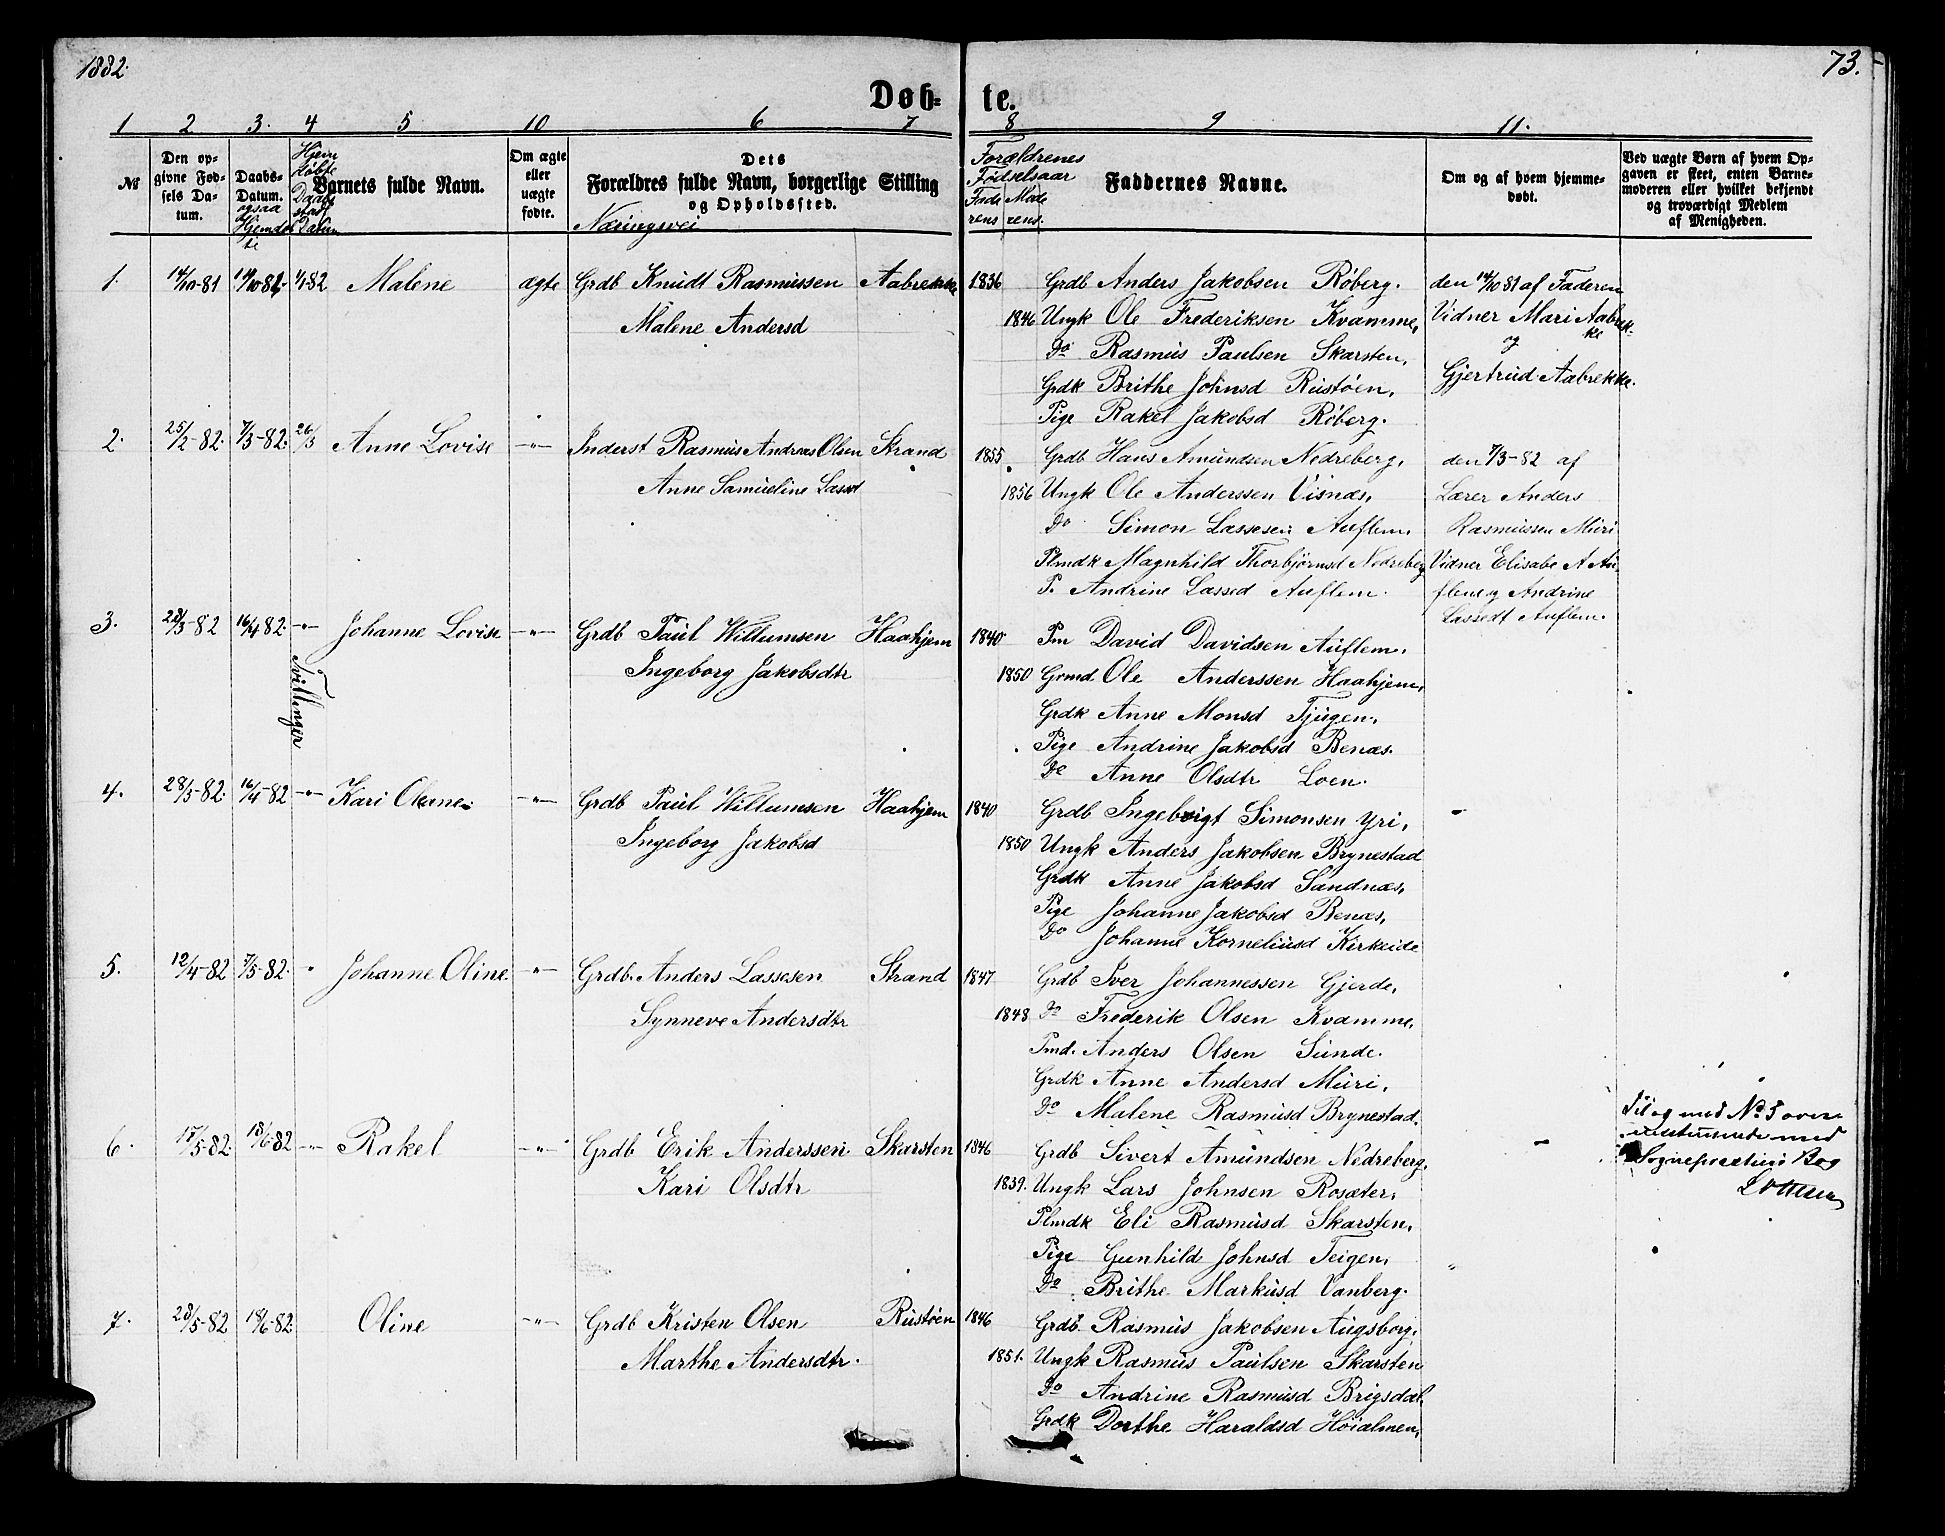 1882.
73.
Døb-
te.
1 2 3. 4 5 10 6 7 8 9 11.
№
Den op-
givne Fød-
sels Da-
tum.
Daabs-
Datum.
ogsaa
Hjemdøb
te
Hjem
døbte
Daabs
stad
Datum
Barnets fulde Navn.
Om ægte
eller
uægte
fødte.
Dets
Forældres fulde Navn, borgerlige Stilling
og Opholdssted.
Næringsvei
Forældrenes
Fødselsaar
Fade Mode
rens rens.
Faddernes Navne.
Om og af hvem hjemme-
døbt.
Ved uægte Børn af hvem Op-
gaven er skeet, enten Barne-
moderen eller hvilket bekjendt
og troværdigt Medlem
af Menigheden.
1. 14/10-81 14/10-81 1/1-82 Malene ægte Grdb Knudt Rasmussen Aabrekke 1836
Malene Andersd 1846
Grdb Anders Jakobsen Røberg.
Ungk Ole Frederiksen Kvamme,
Do Rasmus Paulsen Skarsten,
Grdk Brithe Johnsd Rustøen,
Pige Rakel Jakobsd Røberg.
den 14/10 81 af Faderen
Vidner Mari Aabrek-
ke
og
Gjertrud Aabrekke.
2. 25/2-82. 7/3-82. 26/3 Anne Lovise -"- Inderst Rasmus Andreas Olsen Strand 1855
Anne Samueline Lassd 1856
Grdb Hans Amundsen Nedreberg,
Ungk Ole Anderssen Visnæs,
Do Simon Lassesen Auflem,
Plmdk Magnhild Thorbjørnsd Nedreberg
P. Andrine Lassed Auflem.
den 7/3-82 af
Lærer Anders
Rasmussen Muri
Vidner Elisabe A Au-
flem og Andrine
Lassedt Auflem.
3. 28/3-82 16/4 82. -"- Johanne Lovise -"- Grdb Paul Willumsen Haahjem 1840
Ingeborg Jakobsdtr 1850
Tvillinger
Pm David Davidsen Auflem,
Grmd Ole Anderssen Haahjem,
Grdk Anne Monsd Tjugen,
Pige Andrine Jakobsd Benæs.
Do Anne Olsdtr Loen.
4. 28/3-82. 16/4-82 -"- Kari Oline -"- Grdb Paul Willumsen Haahjem 1840
Ingeborg Jakobsd 1850
Grdb Ingebrigt Simonsen Yri,
Ungk Anders Jakobsen Brynestad
Grdk Anne Jakobsd Sandnæs,
Pige Johanne Jakobsd Benæs,
Do Johanne Korneliusd Kirkeide
5. 12/4-82 7/5-82. " Johanne Oline -"- Grdb. Anders Lassesen Strand 1847
Synneve Andersdtr 1848
Grdb Iver Johannessen Gjerde,
Do Frederik Olsen Kvamme,
Pmd. Anders Olsen Sunde.
Grdk Anne Andersd Muri,
Do Malene Rasmusd Brynestad.
6. 17/5-82. 18/6-82 -"- Rakel -"- Grdb Erik Anderssen Skarsten 1846
Kari Olsdtr 1839.
Grdb Sivert Amundsen Nedreberg,
Ungk Lars Johnsen Rosæter,
Plmdk Eli Rasmusd Skarsten,
Pige Gunhild Johnsd Teigen,
Do Brithe Markusd Vanberg.
Til og med No 5 overe
nsstemmende med
Sognepræstens Bog
7. 28/5-82 18/6-82 Oline -"- Grdb Kristen Olsen Rustøen 1846
Marthe Andersdtr. 1851.
Grdb. Rasmus Jakobsen Augsborg,
Ungk Rasmus Paulsen Skarsten
Do Andrine Rasmusd Brigsdal,
Grdk Dorthe Haraldsd Høialmen,